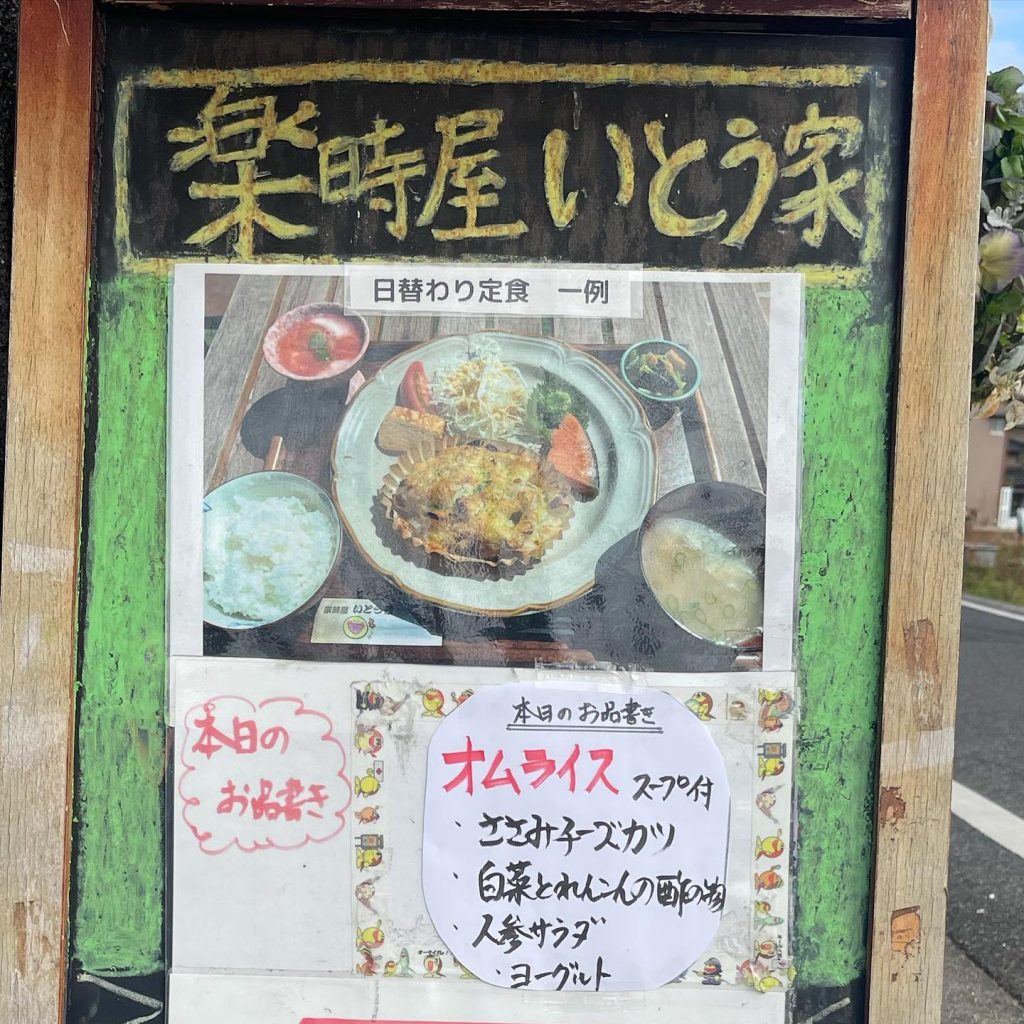 楽時屋 いとう家
日替わり定食 一例
楽時屋 いとう家
本日の
お品書き
本日のお品書き
オムライス スープ付
・ささみチーズカツ
・白菜とれんこんの酢の物
・人参サラダ
・ヨーグルト